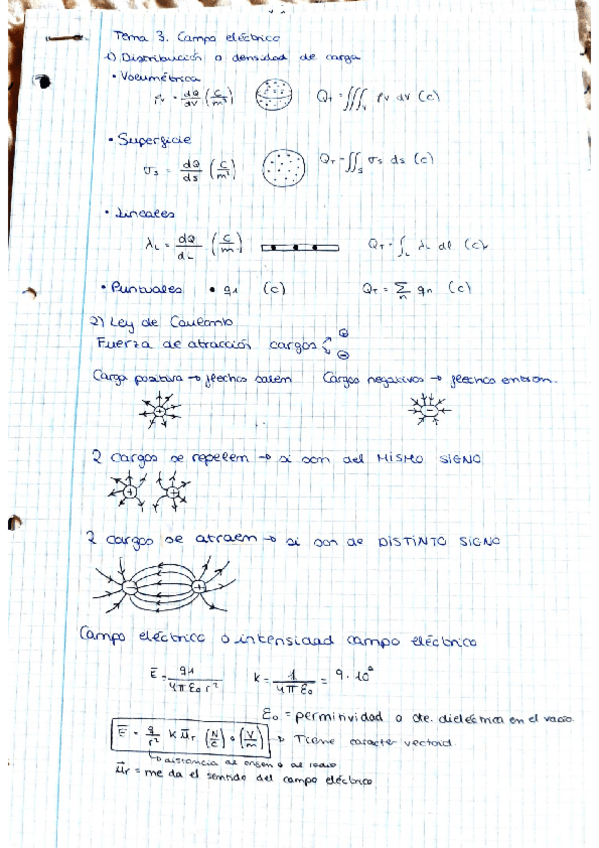 Tema 3. Campo eléctrico
1) Distribución o densidad de carga
• Volumétrica
ρv = dQ/dV (C/m³) QT = ∭v ρv dv (C)
• Superficie
σs = dQ/ds (C/m²) QT = ∬s σs ds (C)
• Lineales
λL = dQ/dL (C/m) QT = ∫L λL dl (C)
• Puntuales • q1 (C) QT = Σn qn (C)
2) Ley de Coulomb
Fuerza de atracción cargas < ⊕ ⊖
Carga positiva → flechas salen Cargas negativas → flechas entran.
+ −
2 cargas se repelen → si son del MISMO SIGNO
+ +
2 cargas se atraen → si son de DISTINTO SIGNO
− +
Campo eléctrico o intensidad campo eléctrico
E = q1/4πε0 r² K = 1/4πε0 = 9·10⁹
ε0 = perminvidad o cte. dieléctrica en el vacio
E = q/r² K ur (N/C) o (V/m) → Tiene caracter vectorial.
→ distancia al origen o al radio
ur = me da el sentido del campo eléctrico